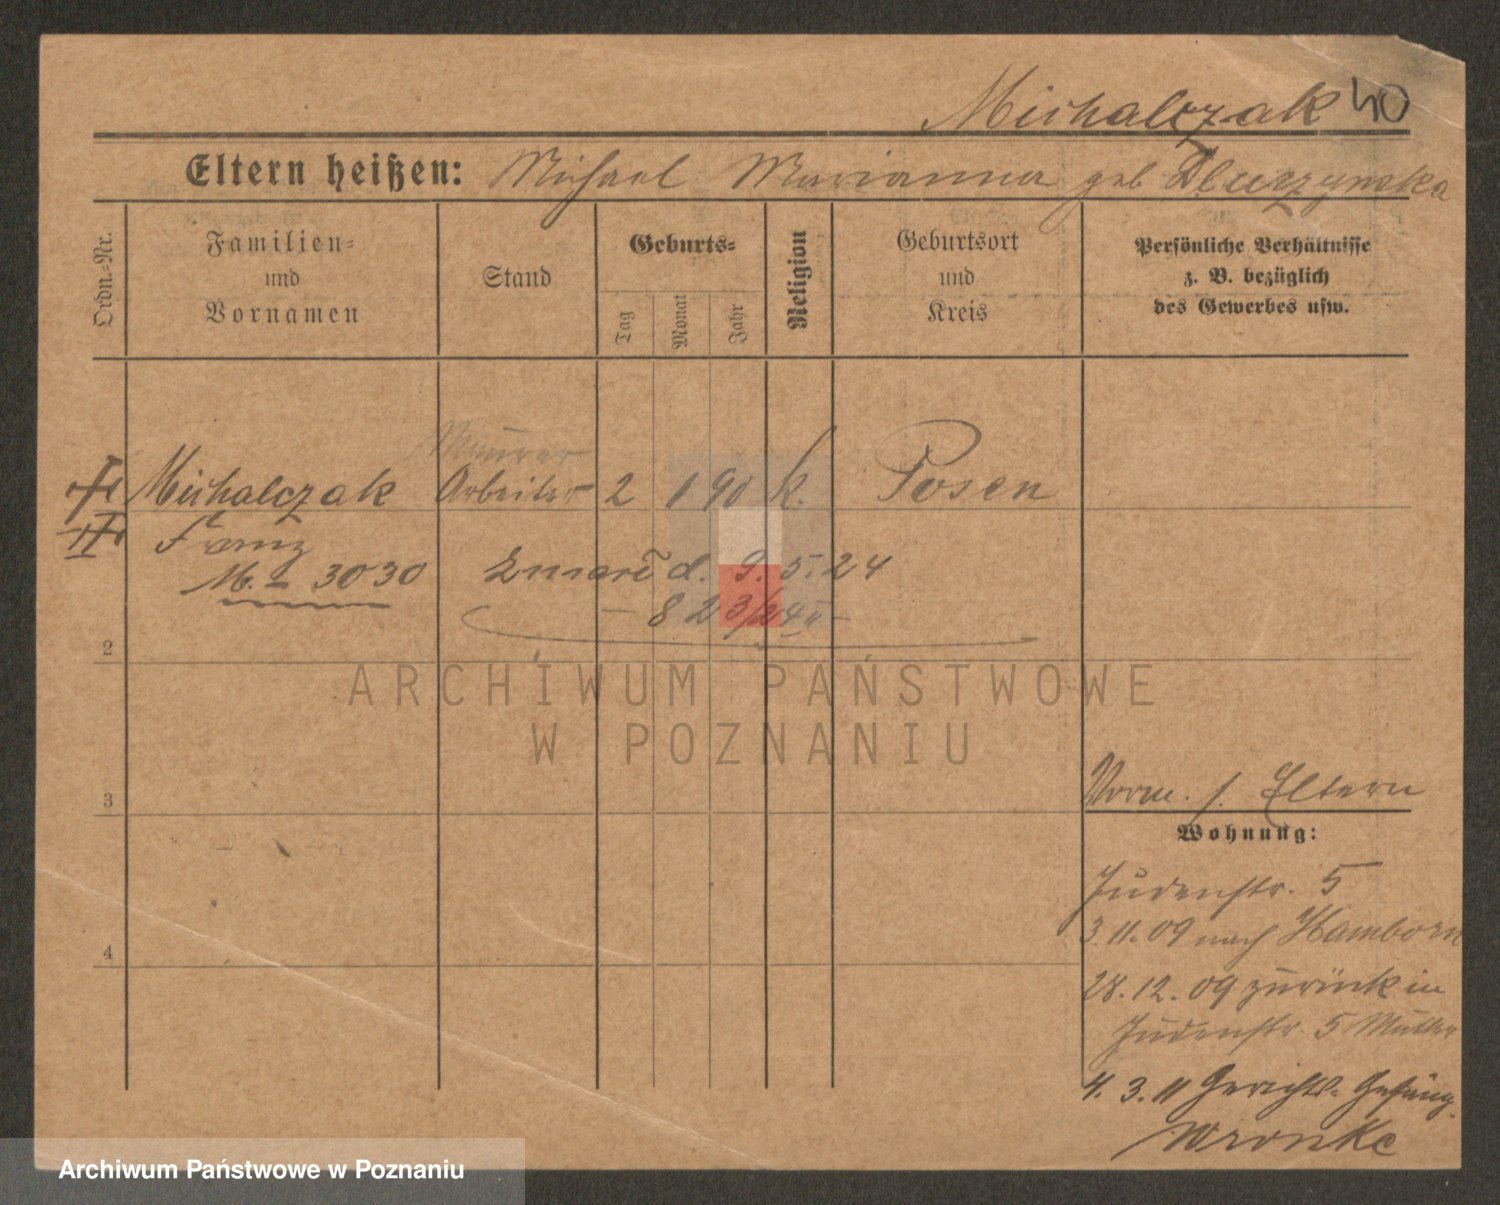 Michalczak 40
Eltern heißen: Michael Marianna geb Dluczynska
Ordn.-Nr.
Familien- und Vornamen
Stand
Geburts-
Tag
Monat
Jahr
Religion
Geburtsort und Kreis
Persönliche Verhältnisse
z. B. bezüglich
des Gewerbes usw.
Maurer
Michalczak Arbeiter 2 1 90 k. Posen
Franz
M. - 3030 Zmarł d. 9. 5. 24
- 823/24 -
2
ARCHIWUM PAŃSTWOWE
W POZNANIU
3
Vorm. s. Eltern
Wohnung:
Judenstr. 5
3. 11. 09 nach Hamborn
4
28. 12. 09 zurück in
Judenstr. 5 Mutter
4. 3. 11 Gerichts-Gefäng.
Wronke
Archiwum Państwowe w Poznaniu